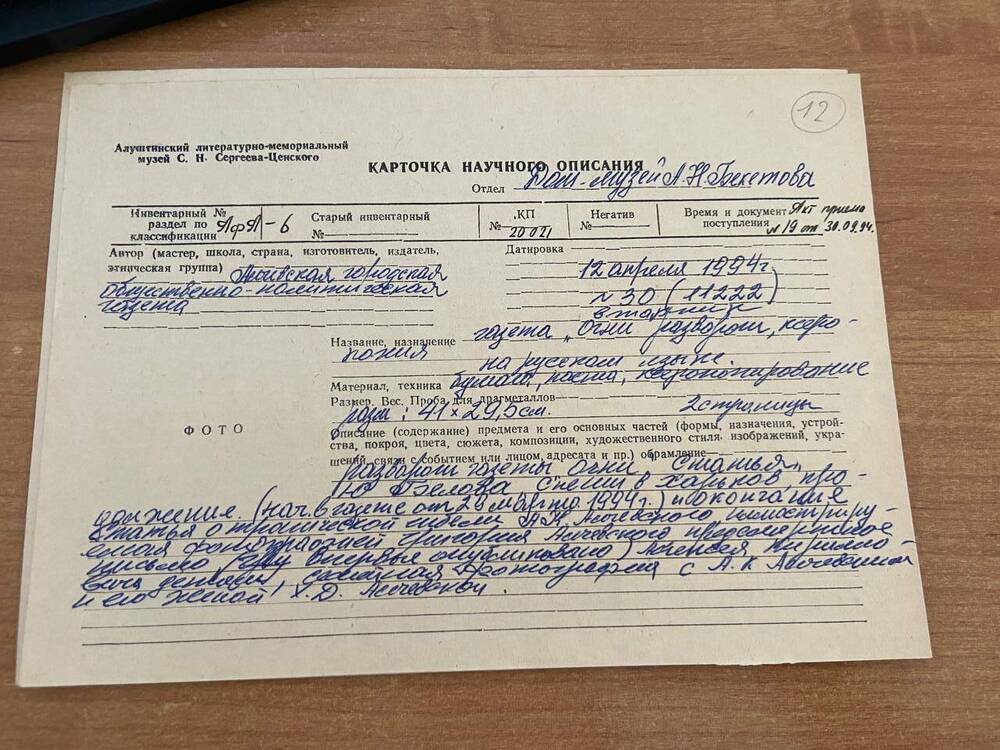 12
Алуштинский литературно-мемориальный
музей С. Н. Сергеева-Ценского
КАРТОЧКА НАУЧНОГО ОПИСАНИЯ
Отдел Дом-музей А.Н. Бекетова
Инвентарный №
раздел по
классификации АфА-6
Старый инвентарный
№
КП
№ 20021
Негатив
№
Время и документ
поступления Акт приема
№ 19 от 30.09.94.
Автор (мастер, школа, страна, изготовитель, издатель,
этническая группа) городская
общественно-политическая
газета
Датировка
12 апреля 1994 г
№ 30 (11222)
вторник
Название, назначение газета „Огни разворот, ксеро-
копия на русском языке.
Материал, техника бумага, паста, ксерокопирование
Размер. Вес. Проба для драгметаллов
разм: 41 × 29,5 см. 2 страницы
ФОТО
Описание (содержание) предмета и его основных частей (формы, назначения, устрой-
ства, покроя, цвета, сюжета, композиции, художественного стиля, изображений, укра-
шений, связи с событием или лицом, адресата и пр.) обрамление
разворот газеты Огни, Статья
Ю Белова, Спеши в Харьков, про-
должение. (нач. в газете от 29 марта 1994 г.) и Окончание
статьи о трагической гибели А.К. Алчевского иллюстриру-
емая фотографией Григория Алчевского предсмертное
письмо впервые опубликовано) Алексея Кирилло-
вича фотография с А. К. Алчевским
и его женой, Х. Д. Алчевской.